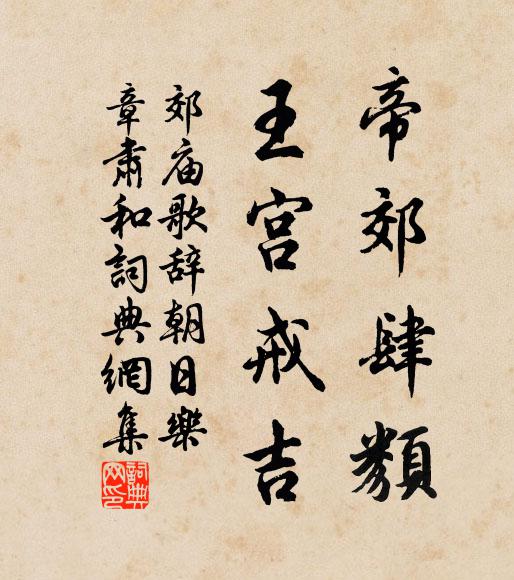 帝郊肆類
王宮戒吉
郊庙歌辞朝日樂
章肅和詞典網集
詞典網印